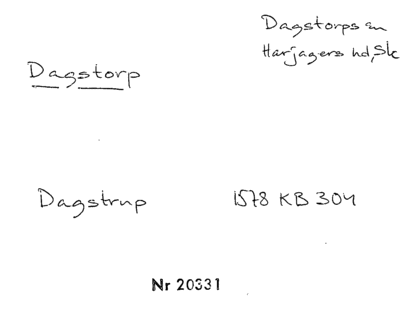 Dagstorps sn
Harjagers hd, Sk
Dagstorp
Dagstrup 1578 KB 304
Nr 20331